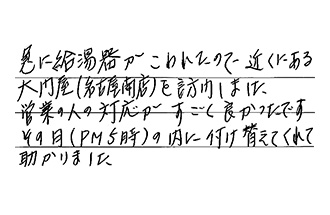 急に給湯器がこわれたので近くにある
大門屋(名古屋南店)を訪門しました
営業の人の対応がすごく良かったです
その日(PM5時)の内に付け替えてくれて
助かりました